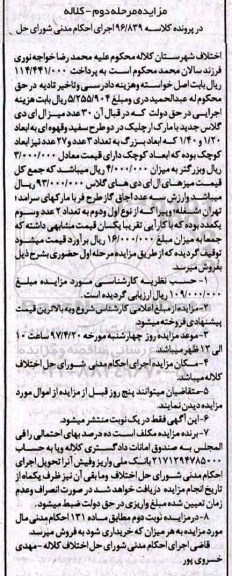 مزایده مرحله دوم - کلاله
در پرونده کلاسه ۹۶/۸۳۹ اجرای احکام مدنی شورای حل
اختلاف شهرستان کلاله محکوم علیه محمد رضا خواجه نوری
فرزند سالان محکوم است به پرداخت ۱۱۴/۴۴۱/۰۰۰
ریال بابت اصل خواسته وهزینه دادرسی و تاخیر تادیه در حق
محکوم له عبدالحمید دری ومبلغ ۵/۲۵۵/۹۰۴ ریال بابت هزینه
اجرایی در حق دولت که در قبال آن ۳۰ عدد میز ال ای دی
گلاس جدید با مارک ارچلیک در دو طرح سفید وقهوه ای به ابعاد
۱/۲۰ و ۱/۴۰ که ابعاد بزرگ به تعداد ۳ عدد و ۲۷ عدد نیز ابعاد
کوچک بوده که ابعاد کوچک دارای قیمت معادل ۳/۰۰۰/۰۰۰
ریال وبزرگتر به میزان ۴/۰۰۰/۰۰۰ ریال میباشد که جمع کل
قیمت میزهای ال ای دی های گلاس ۹۳/۰۰۰/۰۰۰ ریال
میباشد وارزش سه عدد اجاق گاز طرح فر با مارکهای سرامد؛
تهران شعله؛ ویبرا که از نوع اول ودوم به تعداد ۲ عدد وسوم
یکعدد بوده که با کارآیی تقریبا یکسان قیمت مشابهی داشته که
جمعا به میزان مبلغ ۱۶/۰۰۰/۰۰۰ ریال برآورد قیمت میشود
توقیف گردیده که از طریق مزایده مرحله اول حضوری بشرح ذیل
بفروش میرسد.
۱- حسب نظریه کارشناسی مورد مزایده مبلغ
۱۰۹/۰۰۰/۰۰۰ ریال ارزیابی گردیده است.
۲- مزایده از مبلغ اعلامی کارشناس شروع وبه بالاترین قیمت
پیشنهادی فروخته میشود.
۳- موعد مزایده روز چهارشنبه مورخه ۹۷/۴/۲۰ ساعت ۱۰
الی ۱۲ ظهر میباشد.
۴- مکان مزایده اجرای احکام مدنی شورای حل اختلاف
کلاله میباشد.
۵- متقاضیان میتوانند پنج روز قبل از مزایده از اموال مورد
مزایده دیدن نمایند.
۶- این آگهی فقط در یک نوبت منتشر میشود.
۷- برنده مزایده مکلف است ده درصد بهای احتمالی را فی
المجلس به صندوق امانات دادگستری کلاله ویا به حساب
۲۱۷۱۲۹۴۷۸۵۰۰۰ بانک ملی واریز وفیش آنرا تحویل اجرای
احکام مدنی شورای حل اختلاف وما بقی آن نیز ظرف یکماه از
تاریخ انجام مزایده دریافت خواهد شد در صورت انصراف وعدم
زمان تعیین شده مبلغ واریزی در حق دولت ضبط میشود.
۸- در مزایده نوبت دوم مطابق ماده ۱۳۱ احکام مدنی مال
مورد مزایده به هر میزان که خریداری شود به فروش میرسد.
قاضی اجرای احکام مدنی شورای حل اختلاف کلاله - مهدی
خسروی پور